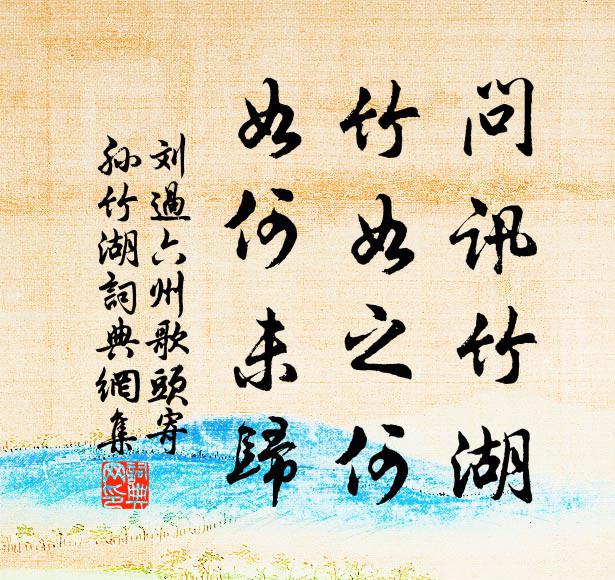 问讯竹湖
竹如之何
如何未歸
刘過六州歌頭寄
孙竹湖詞典網集